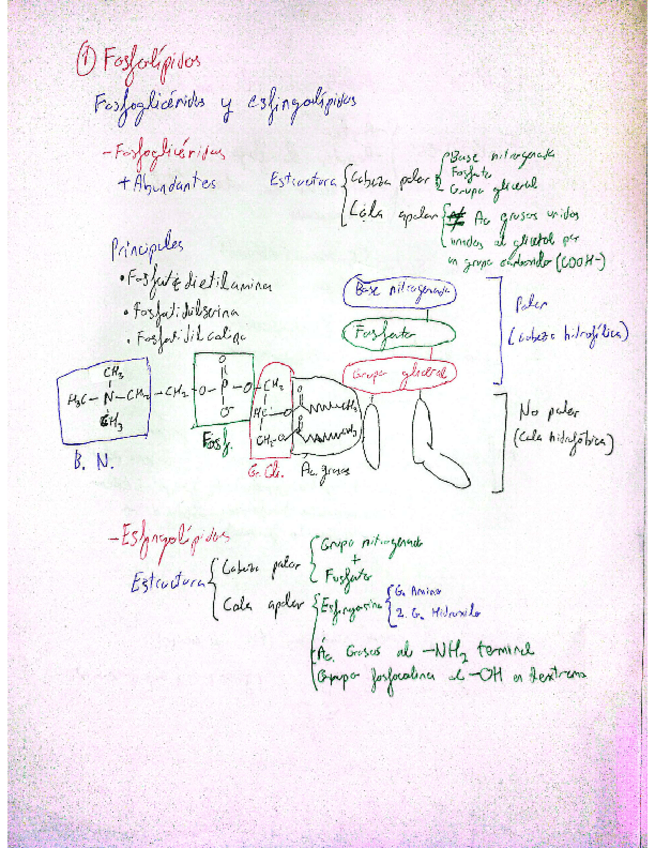 ① Fosfolípidos
Fosfoglicéridos y esfingolípidos
- Fosfoglicéridos
+ Abundantes
Estructura
Cabeza polar
Base nitrogenada
Fosfato
Grupo glicerol
Cola apolar
Ac grasos unidos
unidos al glicerol por
un grupo carbonilo (COOH-)
Principales
• Fosfatidietilamina
• Fosfatidilserina
• Fosfatidilcolina
Base nitrogenada
Fosfato
Grupo glicerol
Polar
(cabeza hidrofílica)
No polar
(Cola hidrofóbica)
CH3
H3C - N - CH2 - CH2 - O - P - O - CH2
CH3
O
O-
HC - O
CH2 - O
CH3
CH3
B. N.
Fosf.
G. Gli.
Ac. grasos
- Esfingolípidos
Estructura
Cabeza polar
Grupo nitrogenado
+
Fosfato
Cola apolar
Esfingosina
G. Amino
2. G. Hidroxilo
Ác. Grasos al -NH2 terminal
Grupo fosfocolina al -OH en l extremo